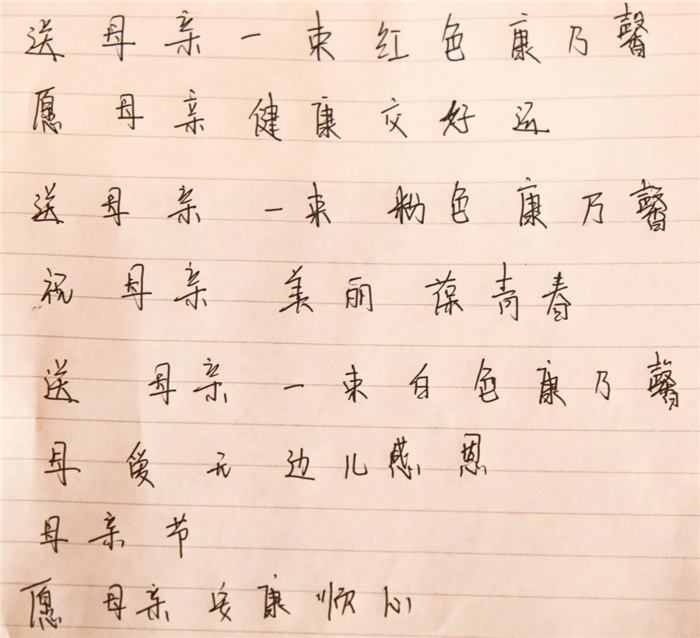 送母亲一束红色康乃馨
愿母亲健康交好运
送母亲一束粉色康乃馨
祝母亲美丽葆青春
送母亲一束白色康乃馨
母爱无边儿感恩
母亲节
愿母亲安康顺心